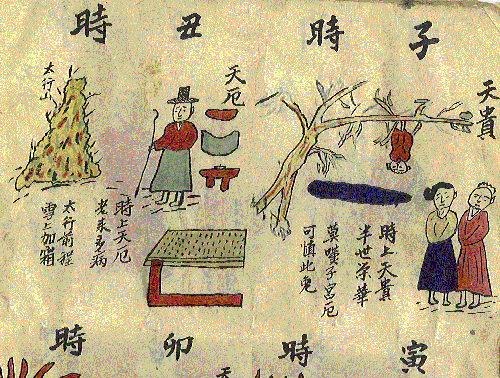 子時
天貴
時上天貴
半世榮華
莫嘆子宮厄
可慎此兔
丑時
天厄
太行山
時上天厄
老来多病
太行前程
雪上加霜
寅時
卯時
天